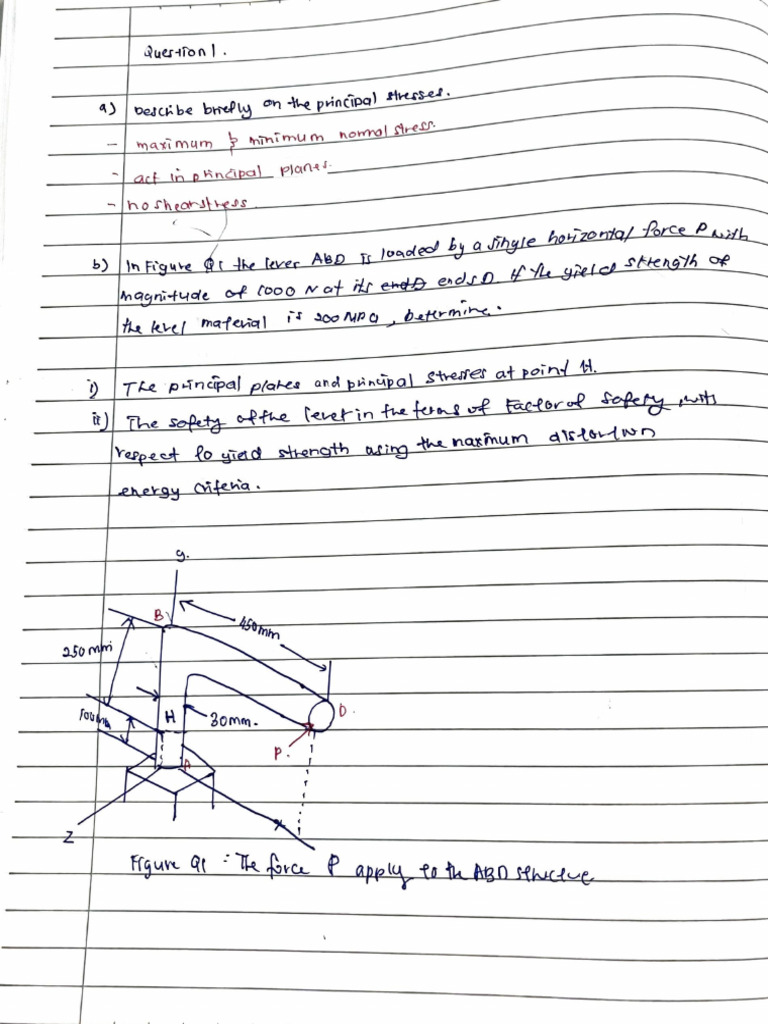 Question 1.
a) Describe briefly on the principal stresses.
- maximum & minimum normal stress.
- act in principal planes.
- no shear stress
b) In Figure Q1 the lever ABD is loaded by a single horizontal force P with
magnitude of 1000 N at its end D ends D. If the yield strength of
the level material is 300 MPa, Determine.
i) The principal planes and principal stresses at point H.
ii) The safety of the level in the terms of Factor of safety with
respect to yield strength using the maximum distortion
energy criteria.
y.
B
450mm
250mm
100mm
H
30mm.
D
P.
A
x
Z
Figure Q1 : The force P apply to the ABD structure